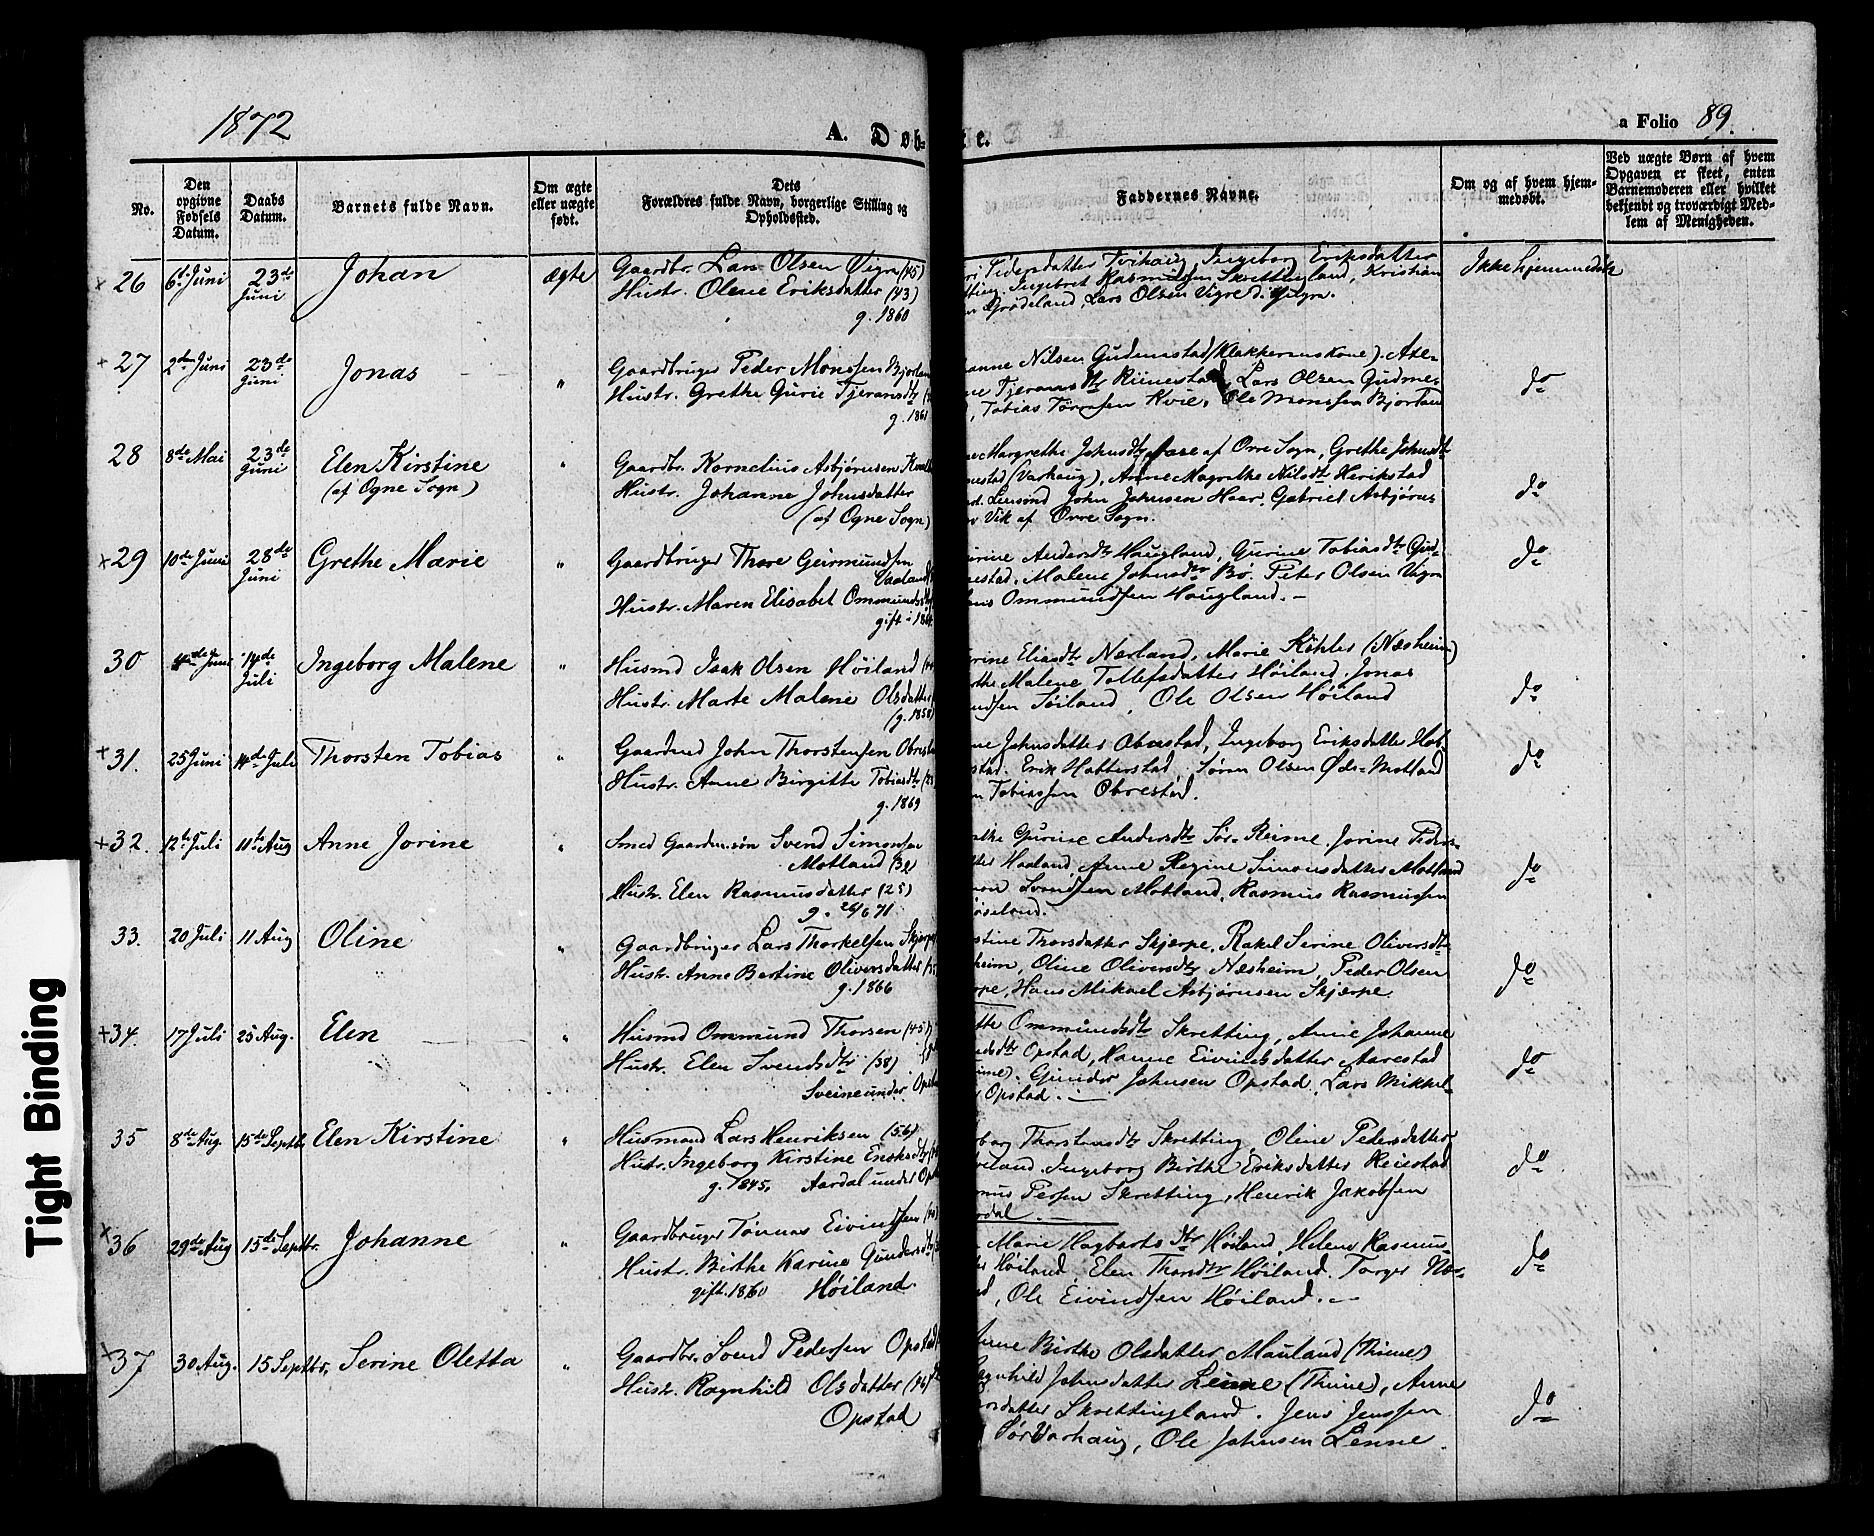 1872
A. Døb-
te.
a Folio 89.
No.
Den opgivne Fødsels Datum.
Daabs Datum.
Barnets fulde Navn.
Om ægte eller uægte født.
Dets Forældres fulde Navn, borgerlige Stilling og Opholdssted.
Faddernes Navne.
Om og af hvem hjemmedøbt.
Ved uægte Børn af hvem Opgaven er skeet, enten Barnemoderen eller hvilket bekjendt og troværdigt Medlem af Menigheden.
26 6te Juni 23de Juni Johan ægte
Gaardbr. Lars Olsen Vigre (45)
Hustr. Olene Eriksdatter (43)
g. 1860
Pedersdatter Tvihaug, Ingeborg Eriksdatter
Ingebret Rasmussen Skrettingland, Kristian
Grødeland, Lars Olsen Vigre
Ikke hjemmedøbt
27 2den Juni 23de Juni Jonas "
Gaardbruger Peder Monssen Bjorland
Hustr. Grethe Gurie Tjeransdtr
g. 1861
Nilsen Gudmestad (Klokkerens Kone).
Tjeransdtr Riinestad, Lars Olsen Gudme-
Tobias Tørresen Kvie, Ole Monssen Bjorland
do
28 8de Mai 23de Juni Elen Kirstine "
(af Ogne Sogn)
Gaardbr. Kornelius Asbjørnsen
Hustr. Johanne Johnsdatter
(af Ogne Sogn)
Margrethe Johnsdtr af Ovre Sogn, Grethe Johnsdtr
(Varhaug), Anne Magrethe Nilsdtr Herikstad
John Johnsen Haar, Gabriel Asbjørns
Vik af Ovre Sogn.
do
29 10de Juni 28de Juni Grethe Marie "
Gaardbruger Thore Geirmundsen
Hustr. Maren Elisabet Ommundsdtr
gift i
Andersdtr Haugland, Gurine Tobiasdtr Gud-
mestad, Malene Johnsdtr Bø. Peter Olsen Vigre
Ommundsen Haugland. —
do
30 Juni 14de Juli Ingeborg Malene "
Husmd Isak Olsen Høiland
Hustr. Marte Malene Olsdatter
(g. 1858)
Eliasdtr Nerland, Marie Köhler (Næsheim)
Malene Tollefsdatter Høiland, Jonas
Høiland, Ole Olsen Høiland
do
31. 25 Juni 14de Juli Thorsten Tobias "
Gaardmd John Thorstensen Obrestad
Hustr. Anne Birgitte Tobiasdtr
g. 1869
Johnsdatter Obrestad, Ingeborg Eriksdatter Hob-
Erik Hatterstad, Søren Olsen Øde-Motland
Tobiassen Obrestad.
do
32. 12te Juli 11te Aug Anne Jorine "
Smed Gaardm.søn Svend Simonsen
Motland (32
Hustr. Elen Rasmusdatter (25)
g. 26/6 71.
Gurine Andersdtr Sør-Reime. Jorine Peders-
Haaland, Anne Regine Simonsdatter Motland
Svendsen Motland, Rasmus Rasmussen
do
33. 20 Juli 11 Aug Oline "
Gaardbruger Lars Thorkelsen Skjærpe
Hustr. Anne Bertine Oliversdatter
g. 1866
Thorsdatter Skjærpe, Rakel Serine Oliversdtr
Oline Oliversdtr Næsheim, Peder Olsen
Hans Mikael Asbjørnsen Skjærpe
do
34. 17 Juli 25 Aug. Elen "
Husmd Ommund Thorsen (45)
Hustr. Elen Svendsdtr (38)
Sveineunder
Ommundsdtr Skretting, Anne Johanne
Opstad, Hanne Eivindsdatter Aarestad
Gunder Johnsen Opstad, Lars Mikkel-
Opstad. —
do
35 8de Aug. 15de Septbr Elen Kirstine "
Husmand Lars Henriksen (56)
Hustr. Ingeborg Kirstine
g. 1845, Aardal under
Thorstensdtr Skretting, Oline Pedersdatter
Ingeborg Birthe Eriksdatter Reiestad
Persen Skretting, Henrik Jakobsen
do
36 29de Aug 15de Septbr. Johanne "
Gaardbruger Tønnes Eivindsen
Hustr. Birthe Karine Gundersdtr
gift. 1860 Høiland
Marie Hagbartsdtr Høiland, Helene Rasmus-
Høiland, Elen Thorsdtr Høiland. Torger
Ole Eivindsen Høiland. —
do
37 30 Aug. 15 Septbr. Serine Oletta "
Gaardbr. Svend Pedersen Opstad
Hustr. Ragnhild Olsdatter
Opstad
Anne Birthe Olsdatter Mauland (Thime)
Ragnhild Johnsdatter Lenne (Thime), Anne
Skrettingland. Jens Jenssen
Sør Varhaug, Ole Johnsen Lenne.
do
Tight Binding